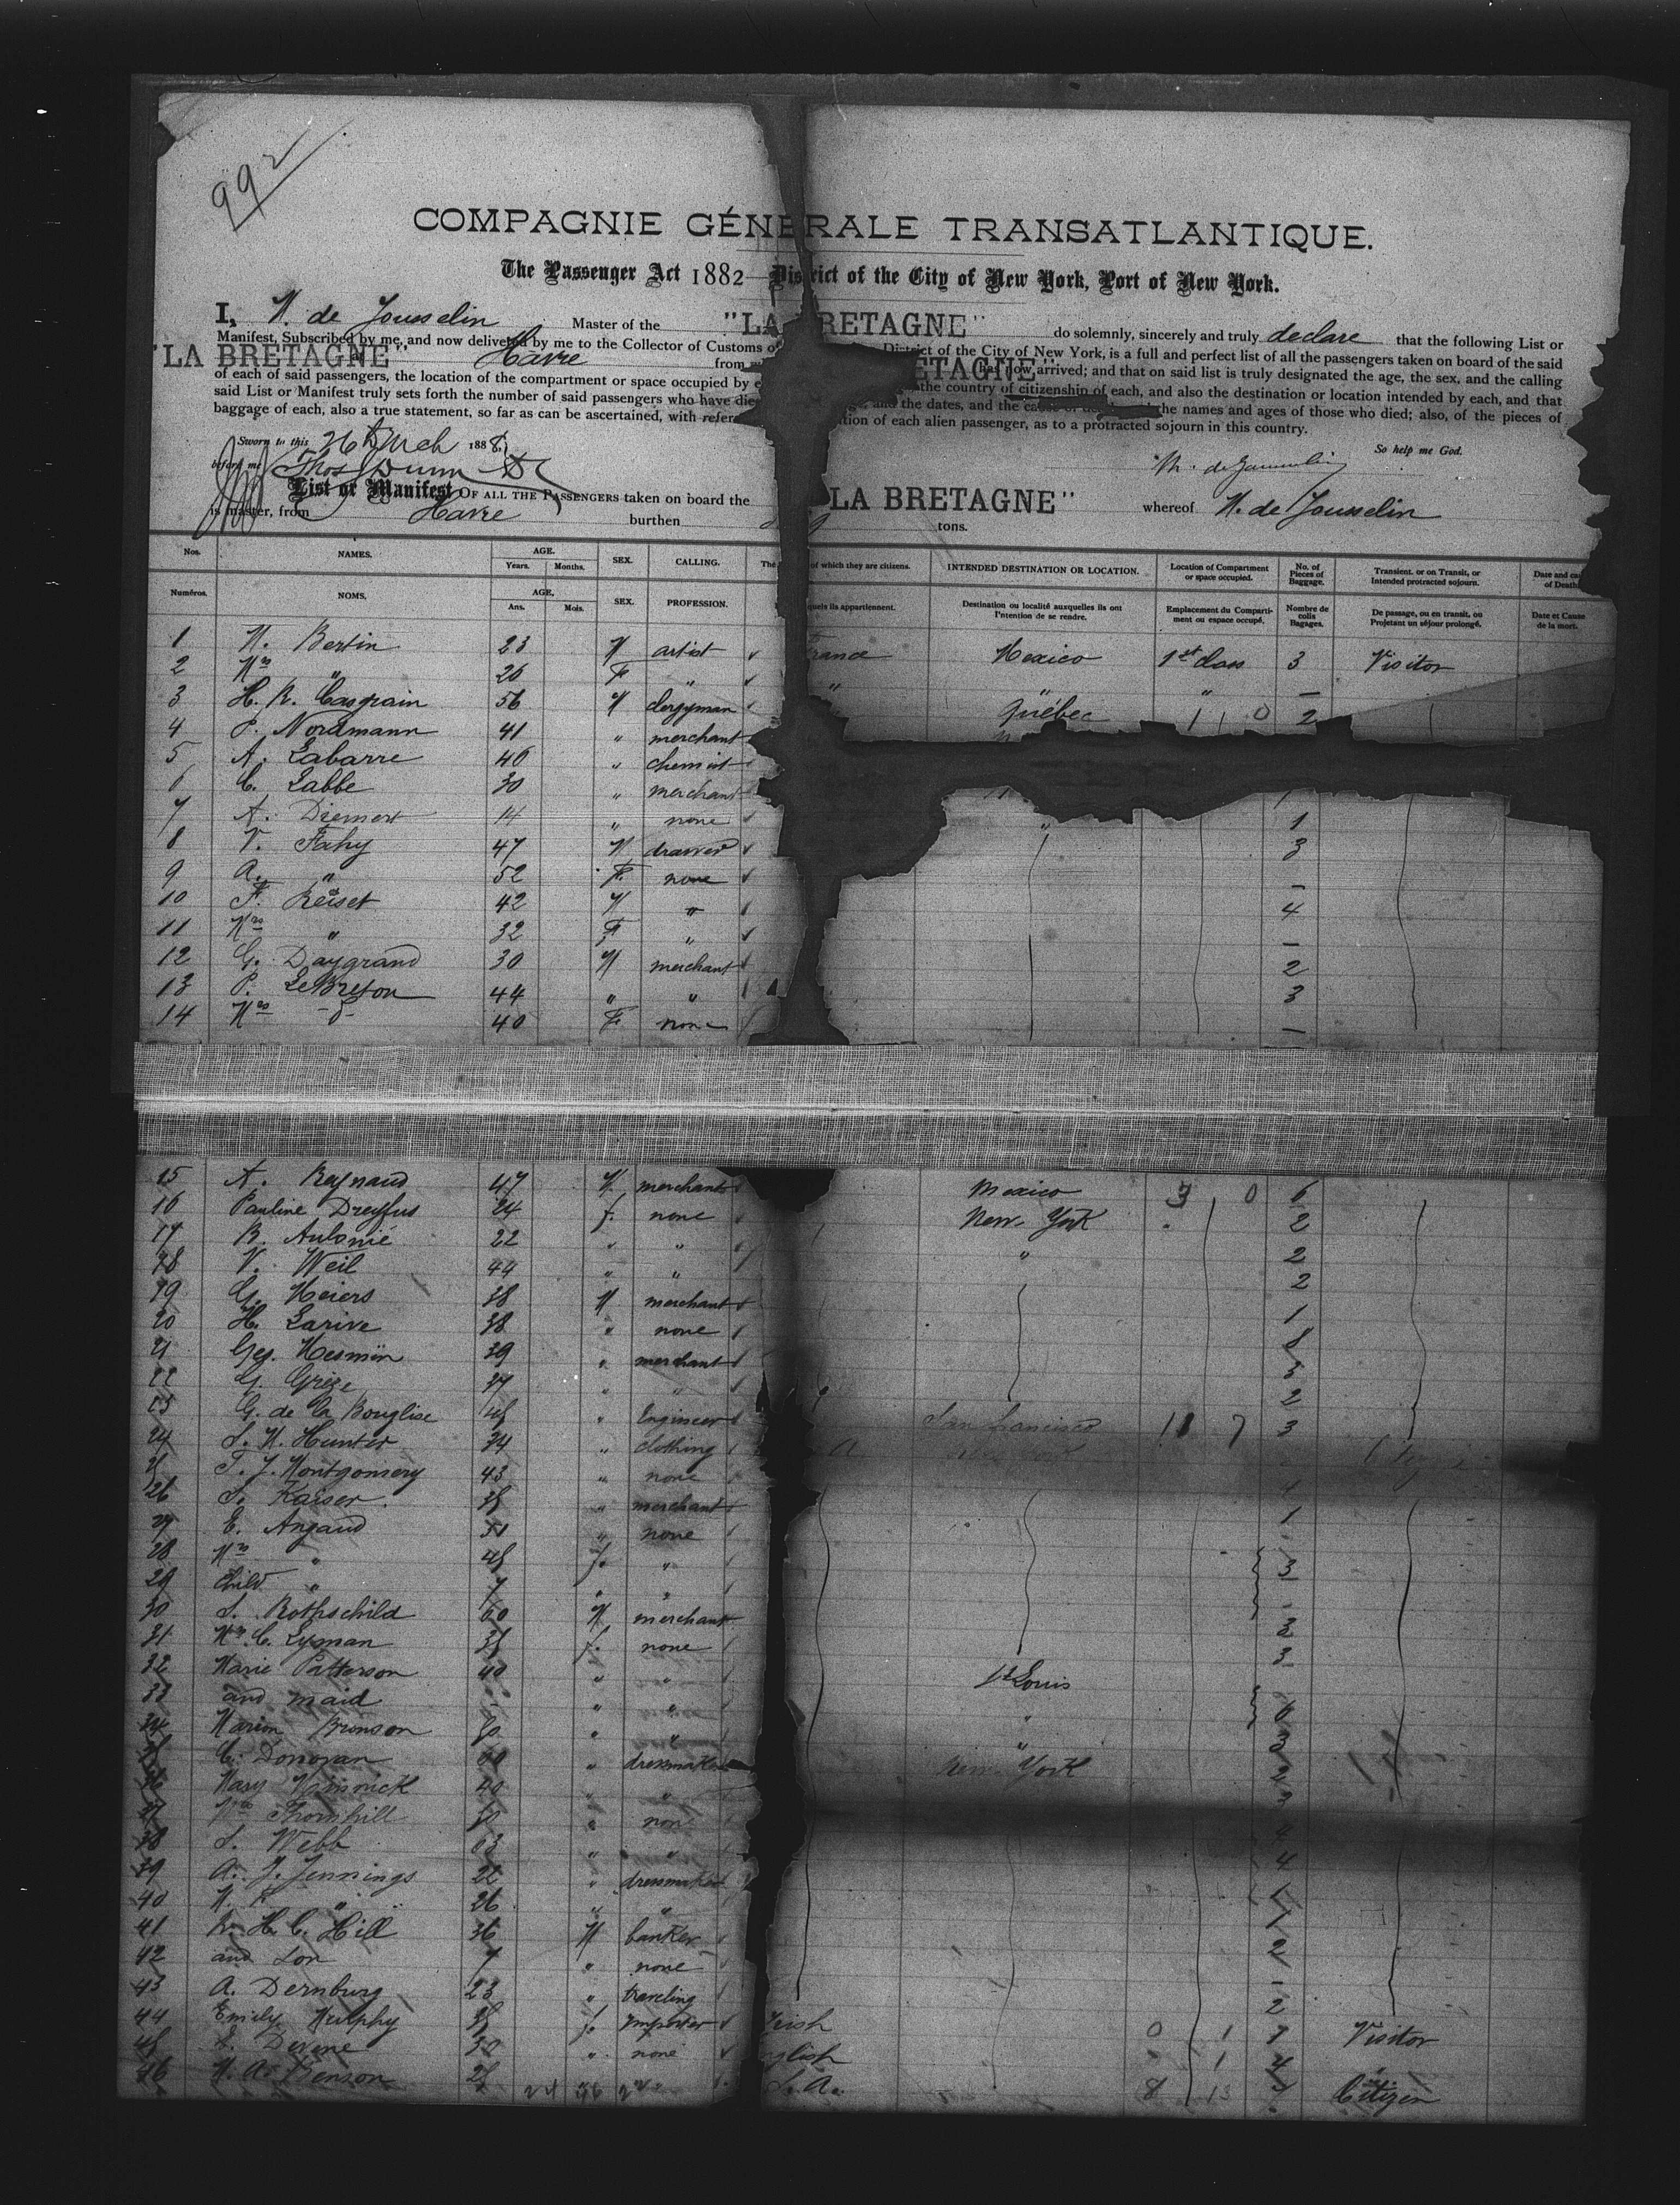 992
COMPAGNIE GÉNÉRALE TRANSATLANTIQUE.
The Passenger Act 1882 District of the City of New York, Port of New York.
I, M. de Jousselin Master of the "LA BRETAGNE" do solemnly, sincerely and truly declare that the following List or
Manifest, Subscribed by me, and now delivered by me to the Collector of Customs o District of the City of New York, is a full and perfect list of all the passengers taken on board of the said
"LA BRETAGNE" Havre from ETAGNE" has now arrived; and that on said list is truly designated the age, the sex, and the calling
of each of said passengers, the location of the compartment or space occupied by e the country of citizenship of each, and also the destination or location intended by each, and that
said List or Manifest truly sets forth the number of said passengers who have die and the dates, and the the names and ages of those who died; also, of the pieces of
baggage of each, also a true statement, so far as can be ascertained, with refer tion of each alien passenger, as to a protracted sojourn in this country.
Sworn to this 26th Mch 1888 So help me God.
before me Thos Dunn M. de Jousselin
List or Manifest OF ALL THE PASSENGERS taken on board the LA BRETAGNE" whereof M. de Jousselin
is master, from Havre burthen tons.
Nos. NAMES. AGE. Years. Months. SEX. CALLING. The of which they are citizens. INTENDED DESTINATION OR LOCATION. Location of Compartment or space occupied. No. of Pieces of Baggage. Transient. or on Transit, or Intended protracted sojourn. Date and cau of Death
Numéros. NOMS. AGE. Ans. Mois. SEX. PROFESSION. quels ils appartiennent. Destination ou localité auxquelles ils ont l'intention de se rendre. Emplacement du Comparti-ment ou espace occupé. Nombre de colis Bagages. De passage, ou en transit, ou Projetant un séjour prolongé. Date et Cause de la mort.
1 M. Bertin 23 M artist rance Mexico 1st class 3 Visitor
2 Mrs " 26 F " " " " —
3 H. R. Casgrain 56 M clergyman Québec 1 0 2
4 P. Nordmann 41 " merchant
5 A. Labarre 40 " chemist
6 C. Labbe 30 " merchant
7 A. Diemert 14 " none " 1
8 V. Fahy 47 M drawer 3
9 A. " 52 F. none —
10 F. Reiset 42 M " 4
11 Mrs " 32 F " —
12 G. Daygrand 30 M merchant 2
13 P. LeBreton 44 " " 3
14 Mrs 40 F none —
15 A. Reynaud 47 M merchant Mexico 3 0 6
16 Pauline Dreyfus 24 f. none New York 2
17 B. Aulonié 22 " " " 2
18 V. Weil 44 " " 2
19 G. Meiers 38 M merchant 1
20 H. Larive 38 " none 8
21 Geo. Mesmin 39 " merchant 3
22 G. Grèze 37 " " 2
23 G. de la Bouglise 45 " Engineer San francisco 11 7 3
24 S. M. Hunter 34 " clothing A
25 T. J. Montgomery 43 " none
26 S. Kaiser 35 " merchant 1
27 E. Angaud 51 " none
28 Mrs " 45 f. " 3
29 Child " 7 " "
30 S. Rothschild 60 M merchant 3
31 Mrs C. Lyman 35 f. none 3
32 Marie Patterson 40 " " St Louis
33 and maid - " " " 6
34 Marion Bronson 50 " " " 3
35 C. Donovan 60 " dressmaker New York 2
36 Mary 40 " "
37 Mrs Thornhill 50 " none 4
38 S. Webb 63 " " 4
39 A. J. Jennings 22 " dressmaker 1
40 26 " " 1
41 R. H. C. Hill 36 M banker 2
42 and Son 7 " none -
43 A. Dernburg 23 " traveling 2
44 Emily Murphy 35 f. Importer rish 0 1 7 Visitor
45 Devine 30 " none glish 1 4 "
46 M. A. Benson 25 S. A. 8 13 4 Citizen